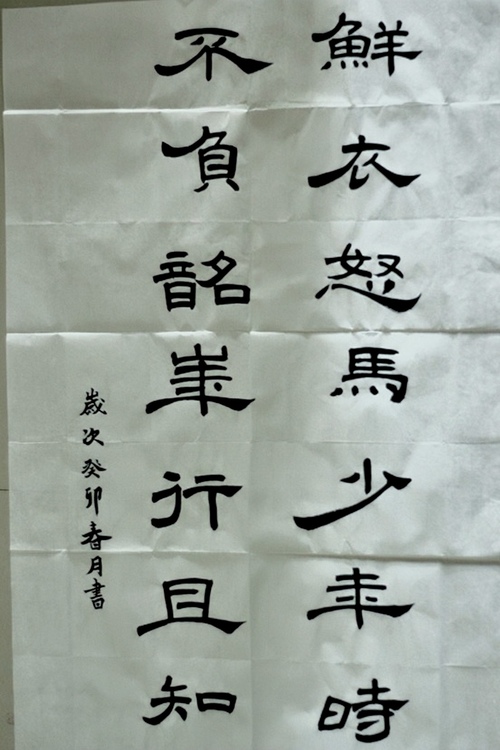 鮮衣怒馬少年時
不負韶華行且知
歲次癸卯春月書